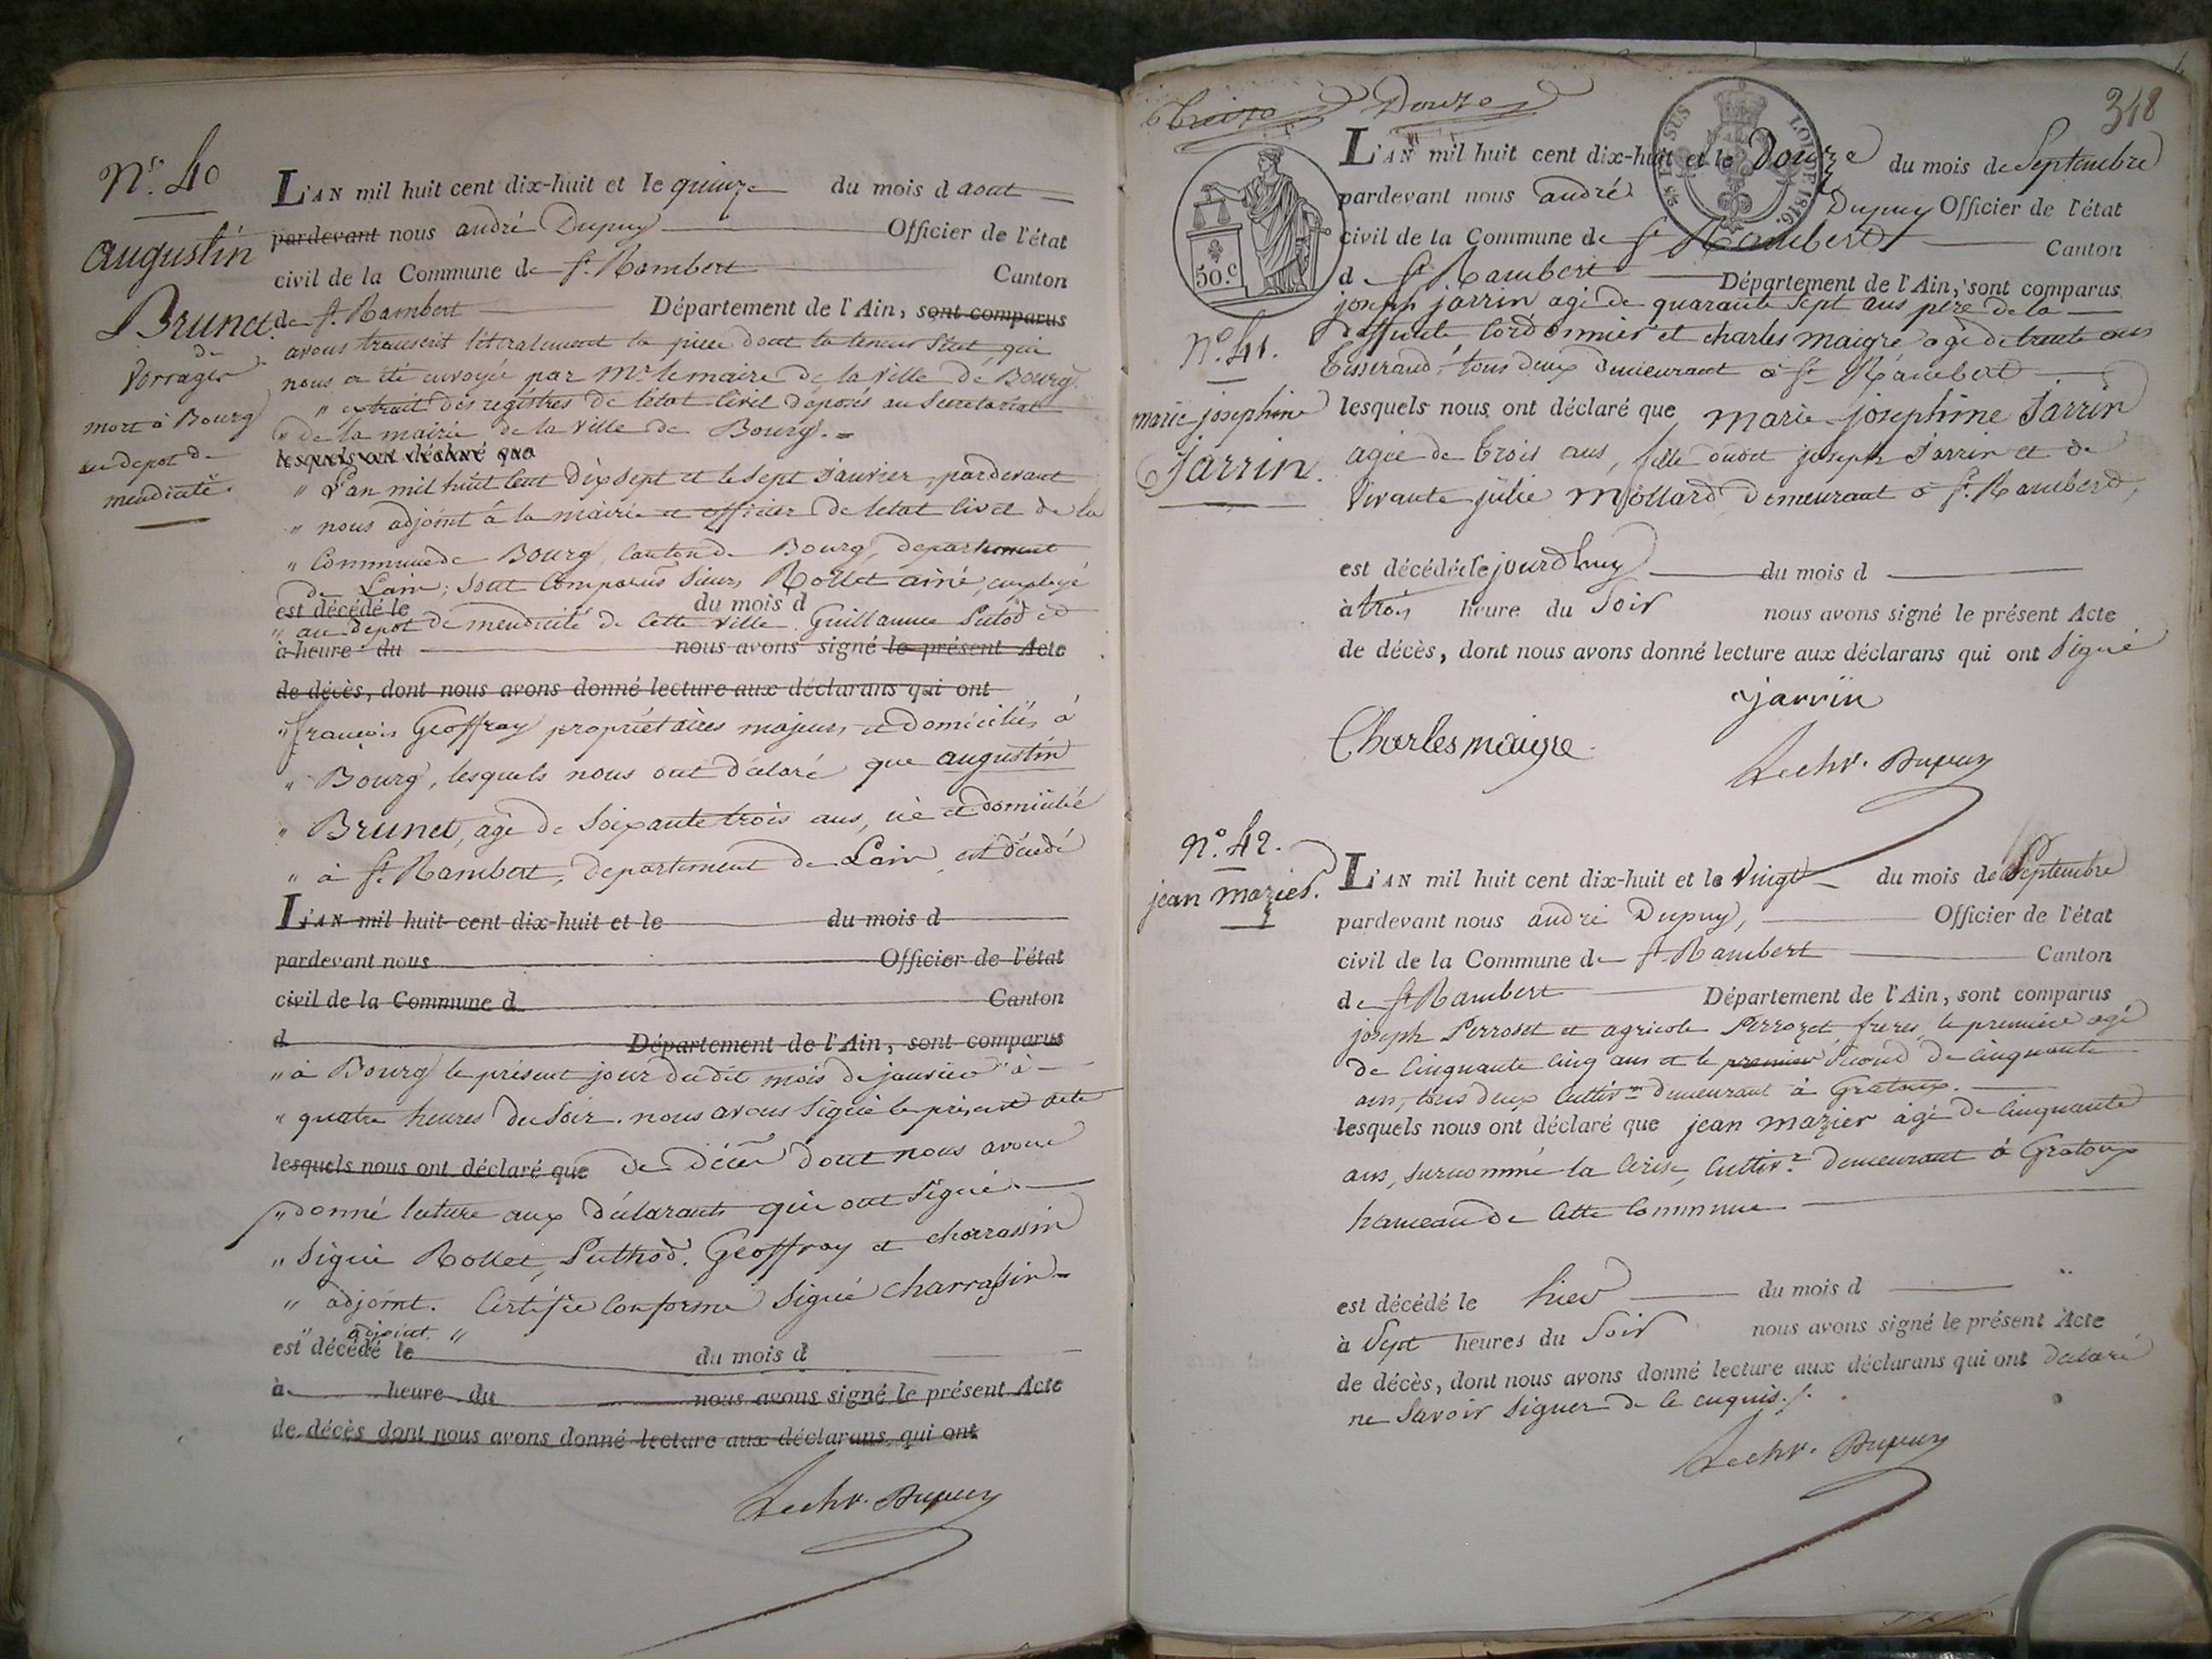 N°. 40
augustin
Brunet
de
Vorrages
mort à Bourg
au depot de
mendicité.
L'AN mil huit cent dix-huit et le quinze du mois d aout
pardevant nous andré Dupuy Officier de l'état
civil de la Commune de St. Rambert Canton
de St. Rambert Département de l'Ain, sont comparus
avons transcrit litteralement la piece dont la teneur suit, qui
nous a été envoyée par Mr. le maire de la ville de Bourg.
" extrait des registres de letat civil deposés au Secretariat
" de la mairie de la ville de Bourg. =
lesquels ont déclaré que
" L'an mil huit cent dix sept et le sept Janvier, pardevant
" nous adjoint à la mairie et officier de letat civil de la
" Commune de Bourg, Canton de Bourg, departement
de Lain; sont comparus Sieurs Rollet ainé, employé
est décédé le du mois d
" au depot de mendicité de cette ville Guillaume Putod et
à heure du nous avons signé le présent Acte
de décès, dont nous avons donné lecture aux déclarans qui ont
" françois Geoffray propriétaires majeurs et domiciliés à
" Bourg, lesquels nous ont déclaré que augustin
" Brunet, agé de Soixante trois ans, né et domicilié
" à St. Rambert, departement de Lain, est décédé
L'AN mil huit cent dix-huit et le du mois d
pardevant nous Officier de l'état
civil de la Commune d Canton
d Département de l'Ain, sont comparus
" à Bourg le présent jour dudit mois de janvier à
" quatre heures du Soir. nous avons signé le présent acte
lesquels nous ont déclaré que de décès dont nous avons
" donné lecture aux déclarants qui ont signé.
" Signé Rollet, Puthod. Geoffray et charrassin
" adjoint. Certifié Conforme Signé charrassin
" adjoint. "
est décédé le du mois d
à heure du nous avons signé le présent Acte
de décès dont nous avons donné lecture aux déclarans, qui ont
Dupuy
348
Douze
ES SUS
LOI DE 1816.
50.c
L'AN mil huit cent dix-huit et le Douze du mois de Septembre
pardevant nous andré Dupuy Officier de l'état
civil de la Commune de St Rambert Canton
d St Rambert Département de l'Ain, sont comparus
joseph jarrin agé de quarante sept ans père de la
deffunte, Cordonnier et charles maigre agé de trente ans
tisserand, tous deux demeurant à St Rambert
N°. 41.
marie josephine
Jarrin.
lesquels nous ont déclaré que Marie josephine Jarrin
agée de trois ans, fille dudit joseph Jarrin et de
Vivante julie Mollard demeurant à St. Rambert,
est décédée le jourdhuy du mois d
à trois heure du Soir nous avons signé le présent Acte
de décès, dont nous avons donné lecture aux déclarans qui ont Signé
jarrin
Charles maigre
Dupuy
N°. 42.
jean Mazier.
L'AN mil huit cent dix-huit et le Vingt du mois de Septembre
pardevant nous andré Dupuy, Officier de l'état
civil de la Commune de St Rambert Canton
de St Rambert Département de l'Ain, sont comparus
joseph Perrozet et agricole Perrozet freres, le premier agé
de Cinquante cinq ans et le premier Second de Cinquante
ans, tous deux Cultivr. demeurant à Gratoux.
lesquels nous ont déclaré que jean Mazier agé de Cinquante
ans, surnommé la Cerise, Cultivr. demeurant à Gratoux
hameau de Cette Commune
est décédé le hier du mois d
à Sept heures du Soir nous avons signé le présent Acte
de décès, dont nous avons donné lecture aux déclarans qui ont déclaré
ne Savoir Signer de ce enquis.
Dupuy